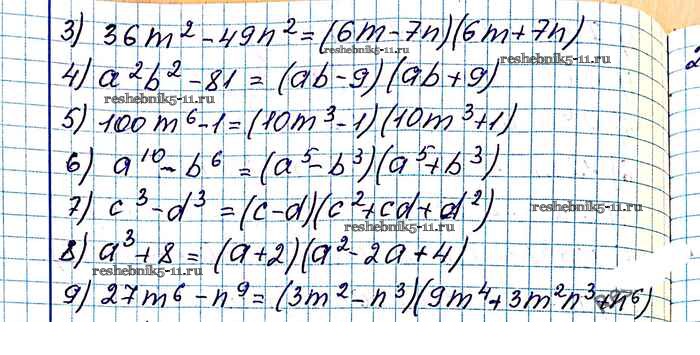 3) 36m² - 49n² = (6m - 7n)(6m + 7n)
reshebnik5-11.ru
reshebnik5-11.ru
4) a²b² - 81 = (ab - 9)(ab + 9)
reshebnik5-11.ru
5) 100m⁶ - 1 = (10m³ - 1)(10m³ + 1)
6) a¹⁰ - b⁶ = (a⁵ - b³)(a⁵ + b³)
7) c³ - d³ = (c - d)(c² + cd + d²)
reshebnik5-11.ru
reshebnik5-11.ru
8) a³ + 8 = (a + 2)(a² - 2a + 4)
reshebnik5-11.ru
9) 27m⁶ - n⁹ = (3m² - n³)(9m⁴ + 3m²n³ + n⁶)